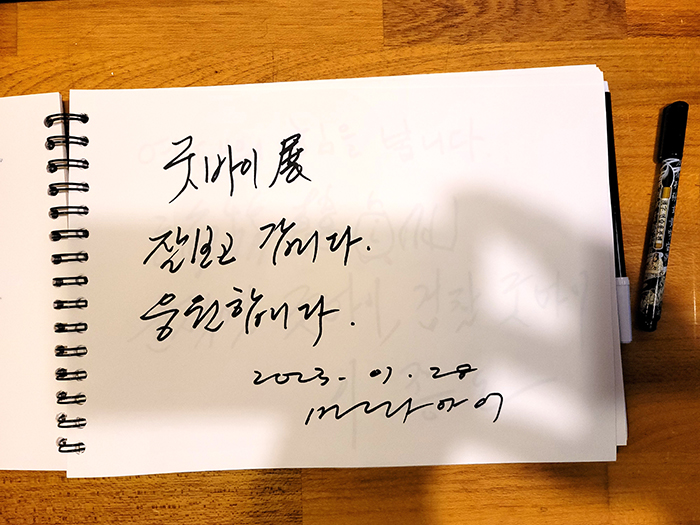 굿바이 展
잘보고 갑니다.
응원합니다.
2023. 01. 28